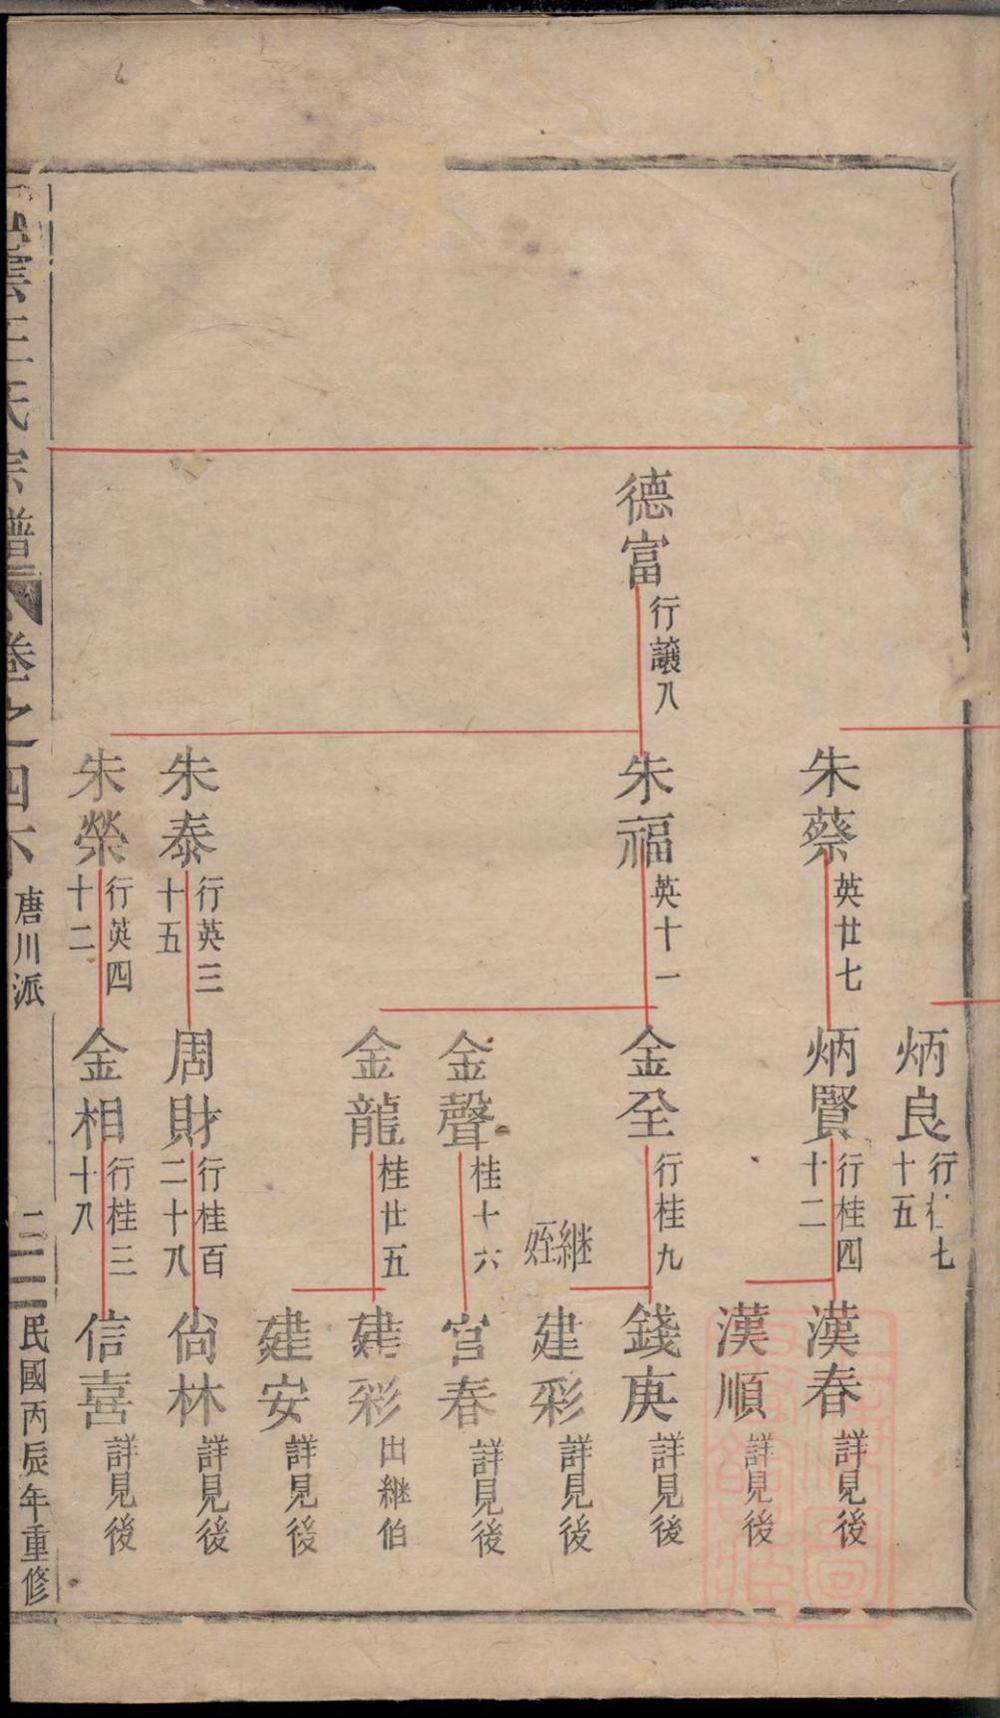 德富 行讓八
朱蔡 英廿七
朱福 英十一
朱泰 行英三十五
朱榮 行英四十二
炳良 行桂七十五
炳賢 行桂四十二
金全 行桂九
金聲 桂十六
金龍 桂廿五
周財 行桂百二十八
金相 行桂三十八
漢春 詳見後
漢順 詳見後
錢庚 詳見後
継姪
建彩 詳見後
宫春 詳見後
建彩 出継伯
建安 詳見後
尙林 詳見後
信喜 詳見後
雲王氏宗譜
卷之四下
唐川派
民國丙辰年重修